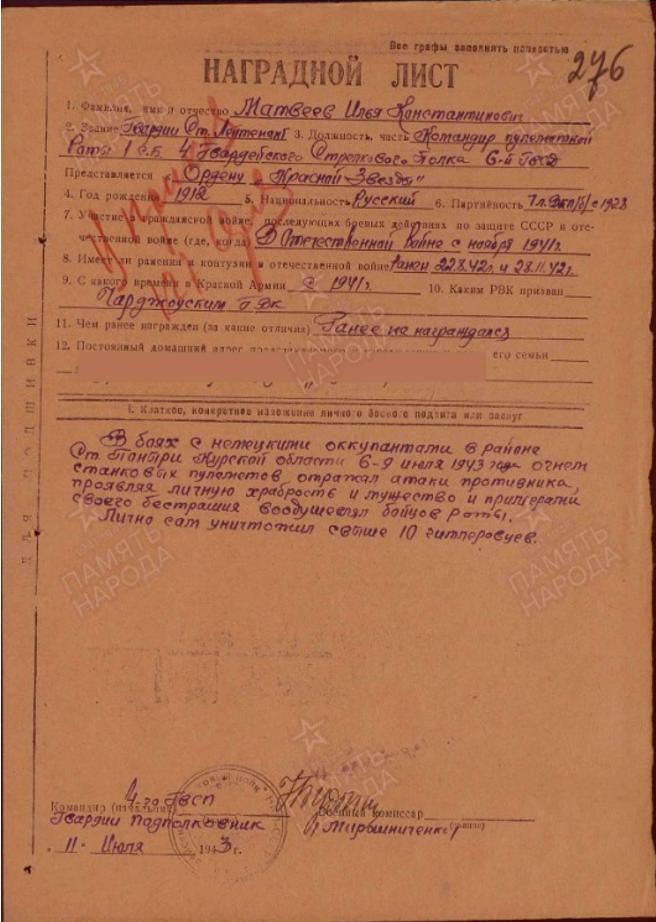 Все графы заполнять полностью
276
НАГРАДНОЙ ЛИСТ
1. Фамилия, имя и отчество Матвеев Илья Константинович
2. Звание Гвардии Ст. Лейтенант 3. Должность, часть Командир пулеметной
Роты 1 с.б. 4 Гвардейского Стрелкового Полка 6-й Гвсд
Представляется к Ордену „Красной Звезды"
4. Год рождения 1912 5. Национальность Русский 6. Партийность Чл. ВКП/б/ с 1928
7. Участие в гражданской войне, последующих боевых действиях по защите СССР и оте-
чественной войне (где, когда) В Отечественной Войне с ноября 1941г.
8. Имеет ли ранения и контузии в отечественной войне Ранен 22.8.42г. и 28.11.42г.
9. С какого времени в Красной Армии с 1941г. 10. Каким РВК призван
Чарджоуским ГВК
11. Чем ранее награжден (за какие отличия) Ранее не награждался
12. Постоянный домашний адрес его семьи
I. Краткое, конкретное изложение личного боевого подвига или заслуг
В боях с немецкими оккупантами в районе
Ст. Поныри Курской области 6-9 июля 1943 года огнем
станковых пулеметов отражал атаки противника,
проявляя личную храбрость и мужество и примерами
своего бестрашия воодушевлял бойцов роты.
Лично сам уничтожил свыше 10 гитлеровцев.
4-го ГвСП
Командир (начальник) Военный комиссар
Гвардии Подполковник Мирошниченко (звание)
11 Июля 1943 г.
ДЛЯ ПОДШИВКИ
ПАМЯТЬ НАРОДА